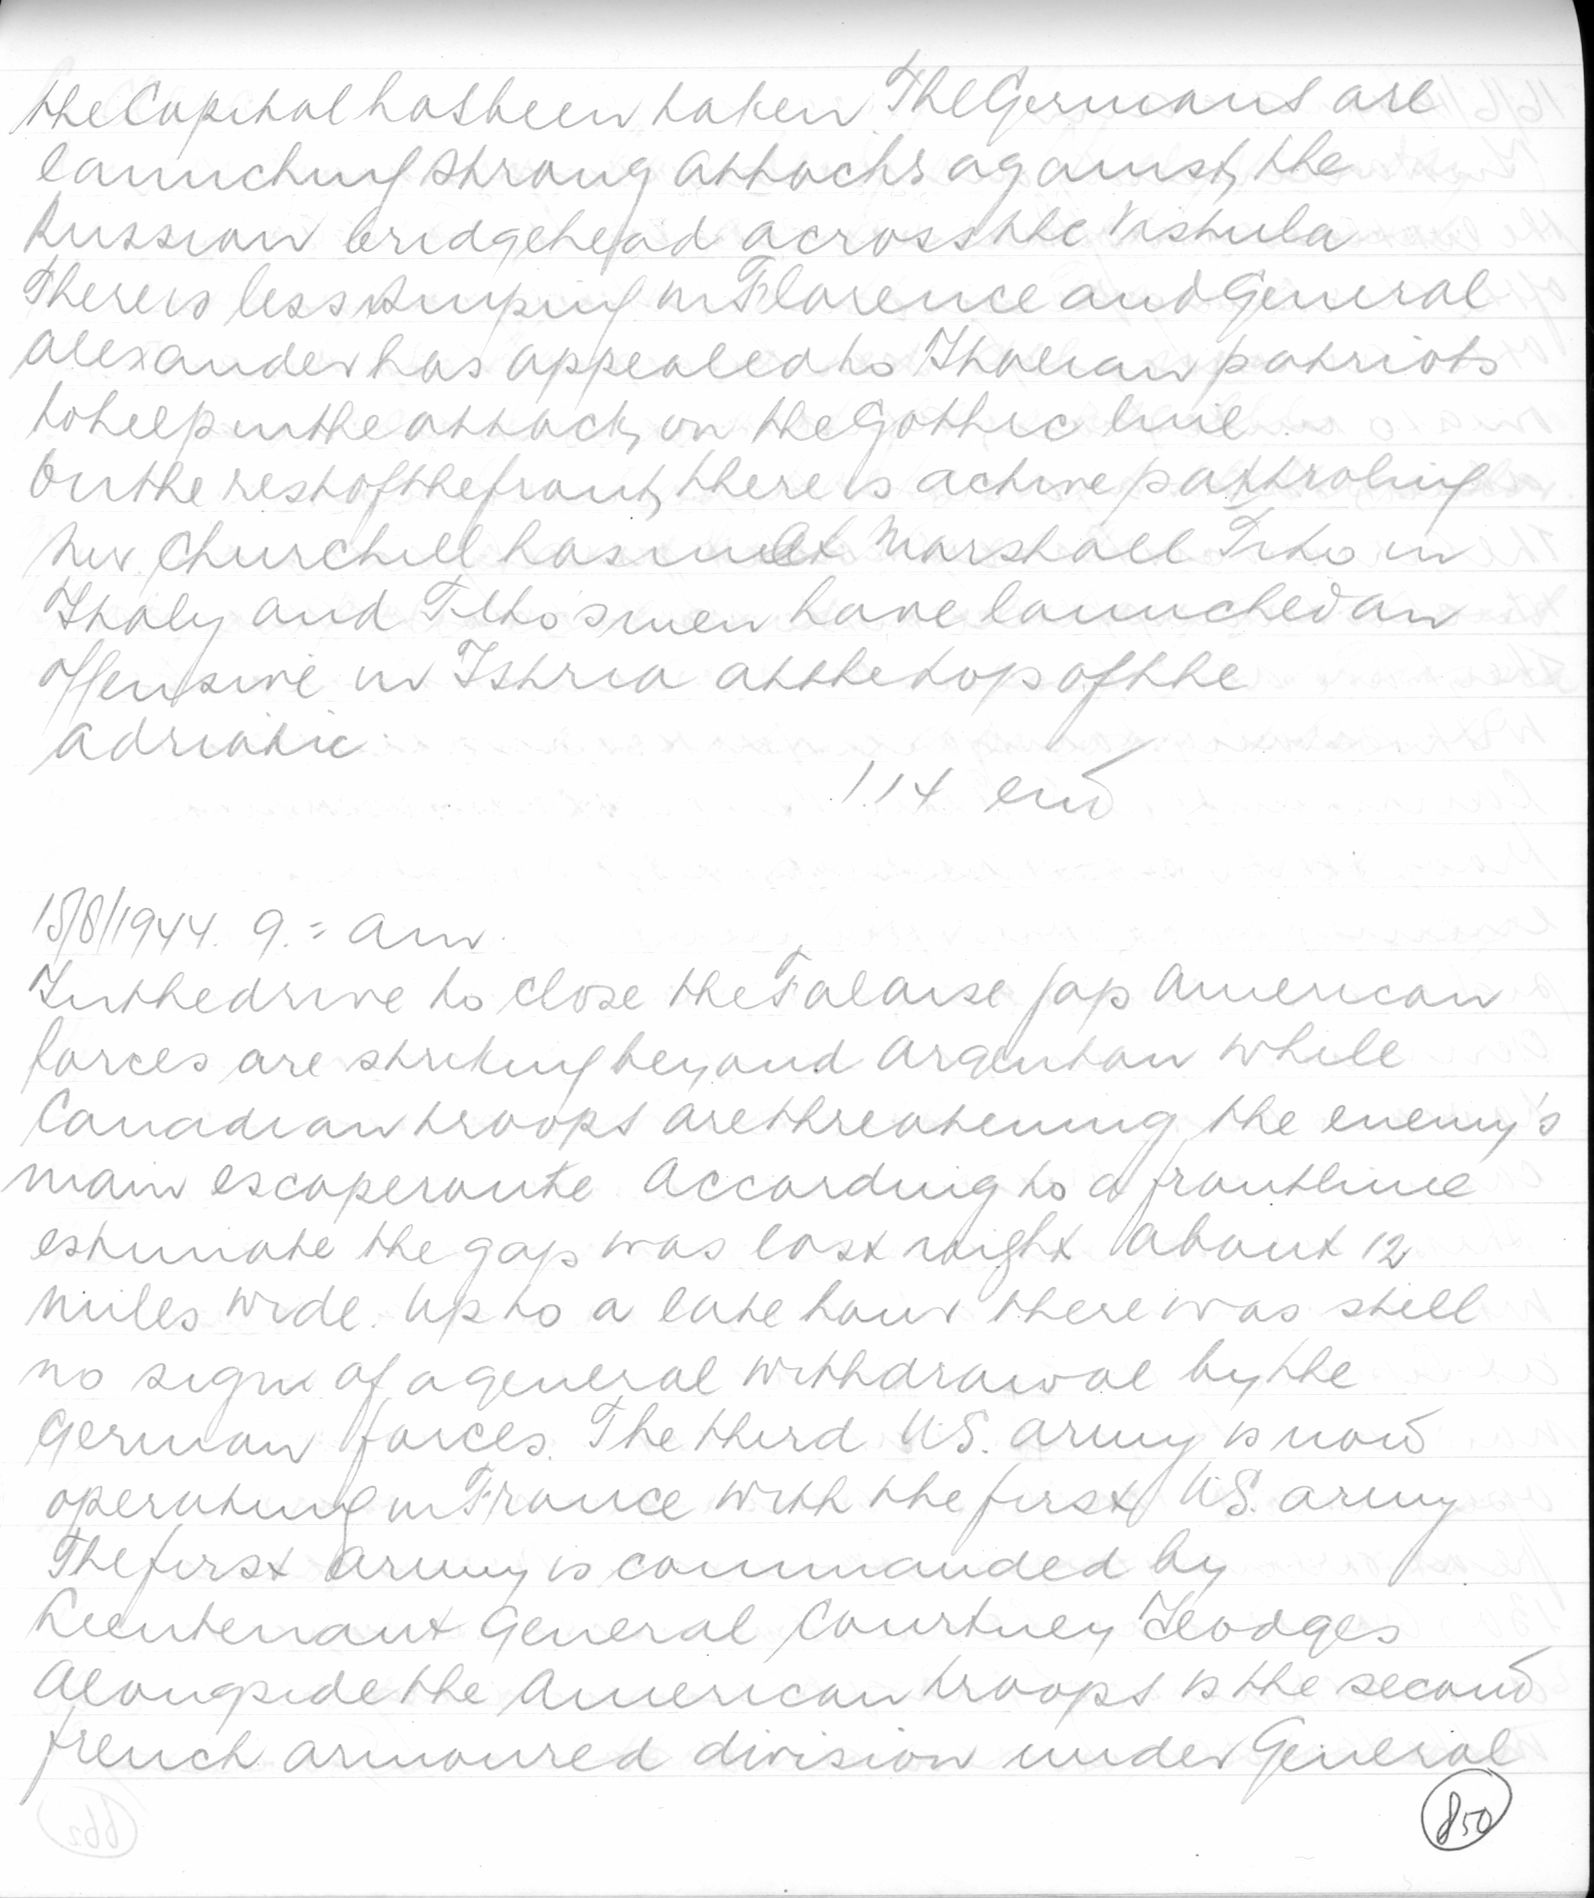 the Capital has been taken The Germans are
launching strong attacks against the
Russian bridgehead across the Vistula
There is less sniping in Florence and General
Alexander has appealed to Italian patriots
to help in the attack on the Gothic line
On the rest of the front there is active pattroling
Mr Churchill has met Marshall Tito in
Italy and Tito's men have launched an
offensive in Istria at the top of the
Adriatic
1.14 end
15/8/1944. 9.= am.
In the drive to close the Falaise gap American
forces are striking beyond Argentan while
Canadian troops are threatening the enemy's
main escape route According to a frontline
estimate the gap was last night about 12
miles wide. Up to a late hour there was still
no sign of a general withdrawal by the
German forces. The third U.S. army is now
operating in France with the first U.S. army
The first army is commanded by
Lieutenant General Courtney Hodges
Alongside the American troops is the second
french armoured division under General
850